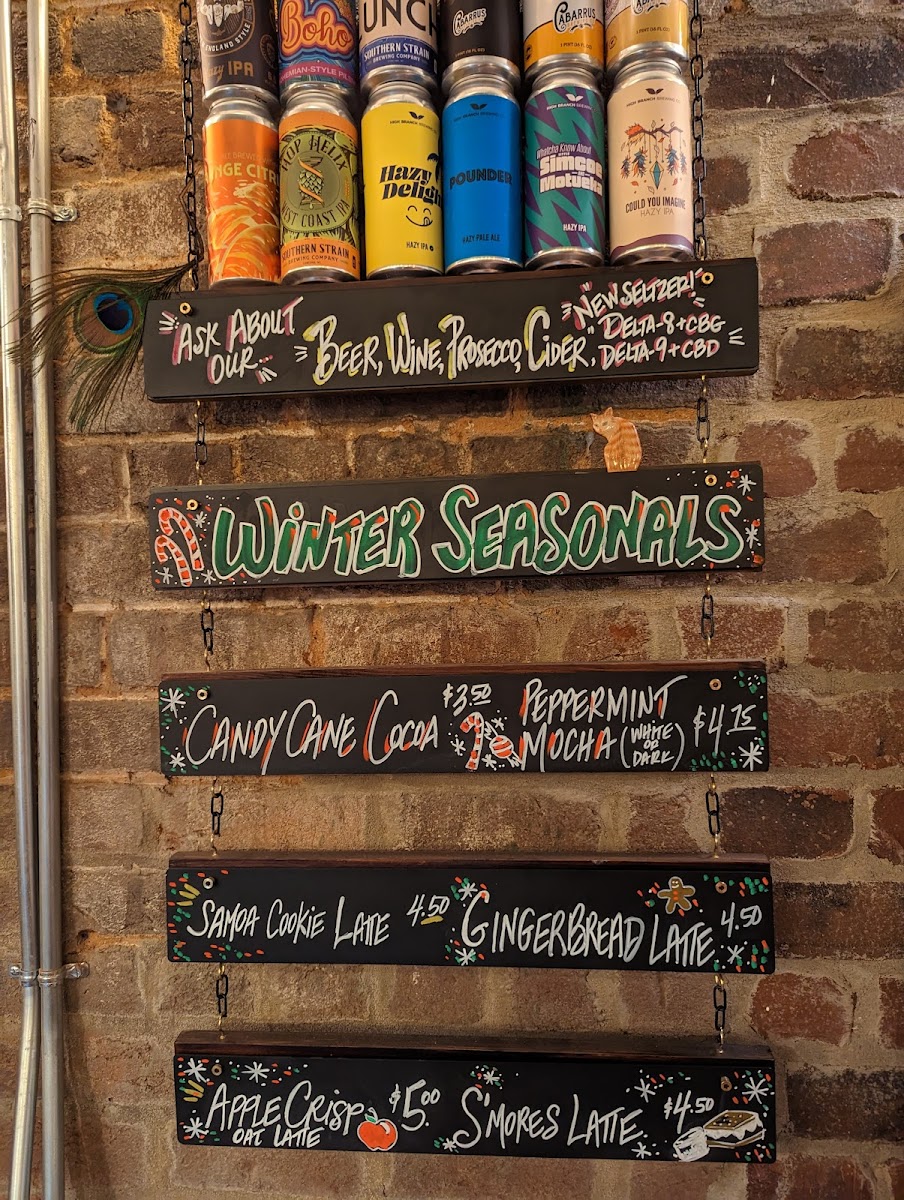 ENGLAND STYLE
IPA
Boho
SOUTHERN STRAIN
BREWING COMPANY
CABARRUS
CABARRUS
CABARRUS
HOP HELIX
WEST COAST IPA
SOUTHERN STRAIN
BREWING COMPANY
HIGH BRANCH BREWING CO.
Hazy
Delight
HAZY IPA
POUNDER
HAZY PALE ALE
HIGH BRANCH BREWING
Whatcha Know About
Simcoe
Motueka
HAZY IPA
HIGH BRANCH BREWING CO.
COULD YOU IMAGINE
HAZY IPA
"ASK ABOUT
OUR...
BEER, WINE, PROSECCO, CIDER,
"NEW SELTZER!"
"DELTA-8+CBG
DELTA-9+CBD"
WINTER SEASONALS
CANDY CANE COCOA $3.50
PEPPERMINT
MOCHA (WHITE OR DARK) $4.75
SAMOA COOKIE LATTE 4.50
GINGERBREAD LATTE 4.50
APPLE CRISP $5.00
OAT LATTE
S'MORES LATTE $4.50